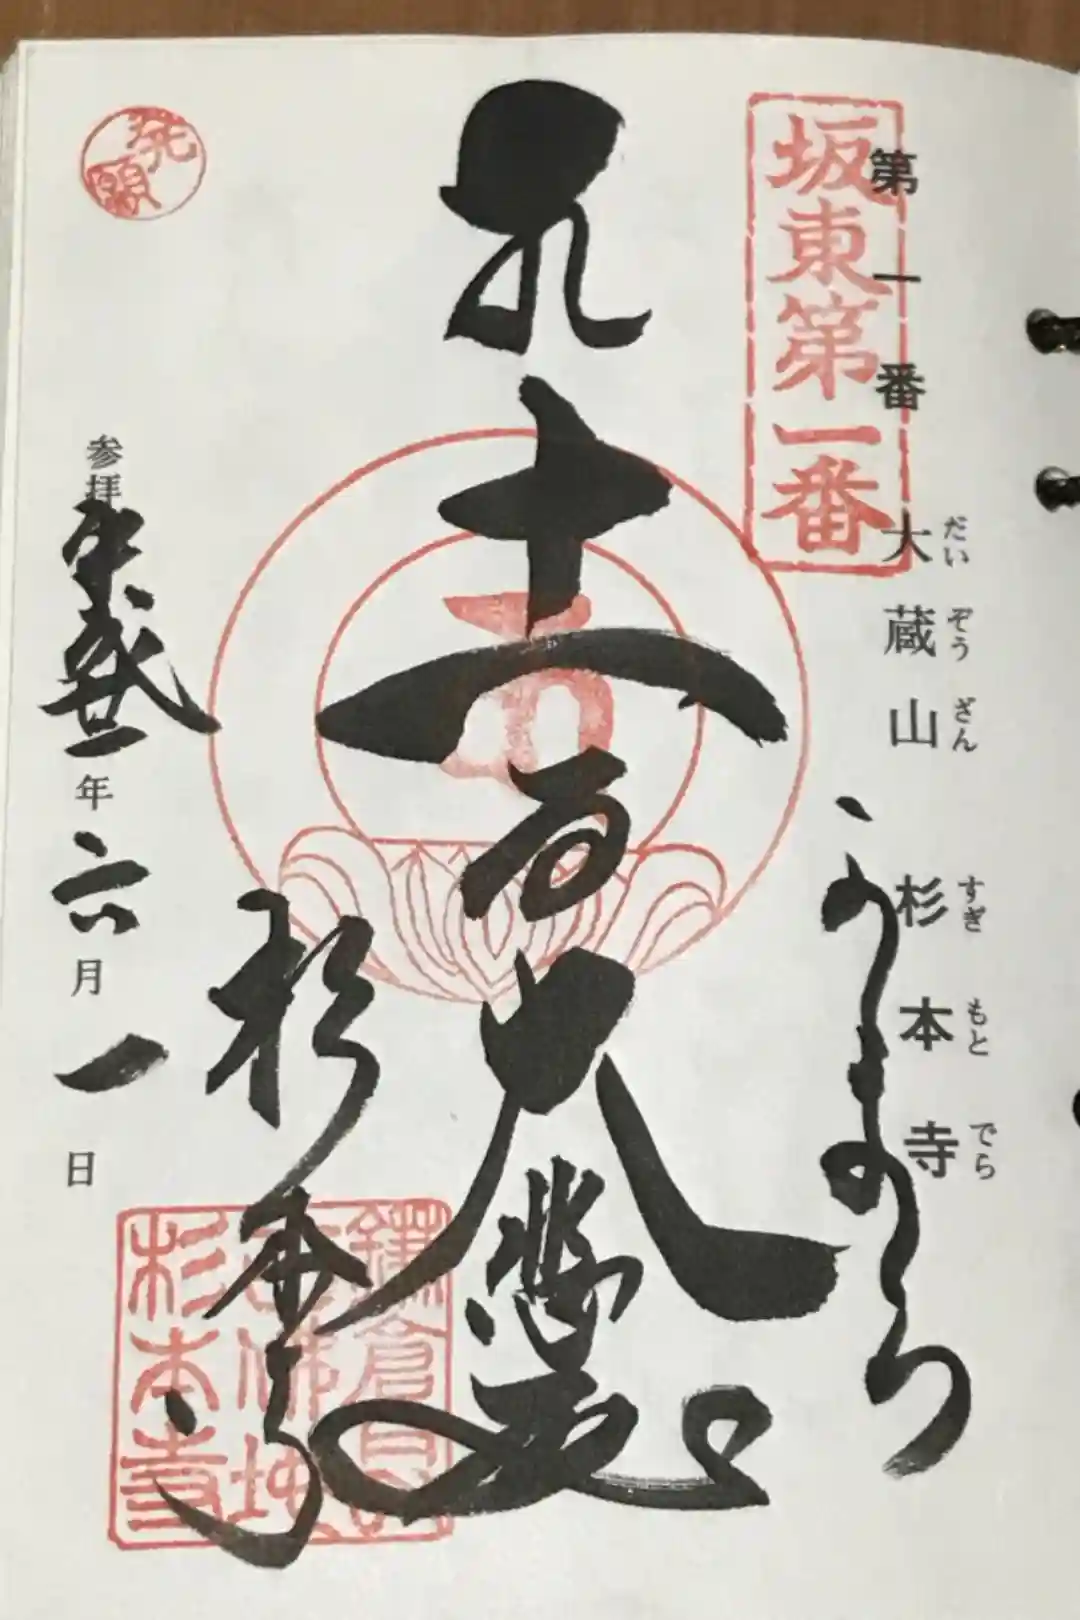 坂東第一番
第一番 大蔵山 杉本寺
だいぞうざん すぎもとでら
かまくら
十一面大悲殿
杉本寺
発願
参拝平成廿年六月一日
鎌倉
杉本寺